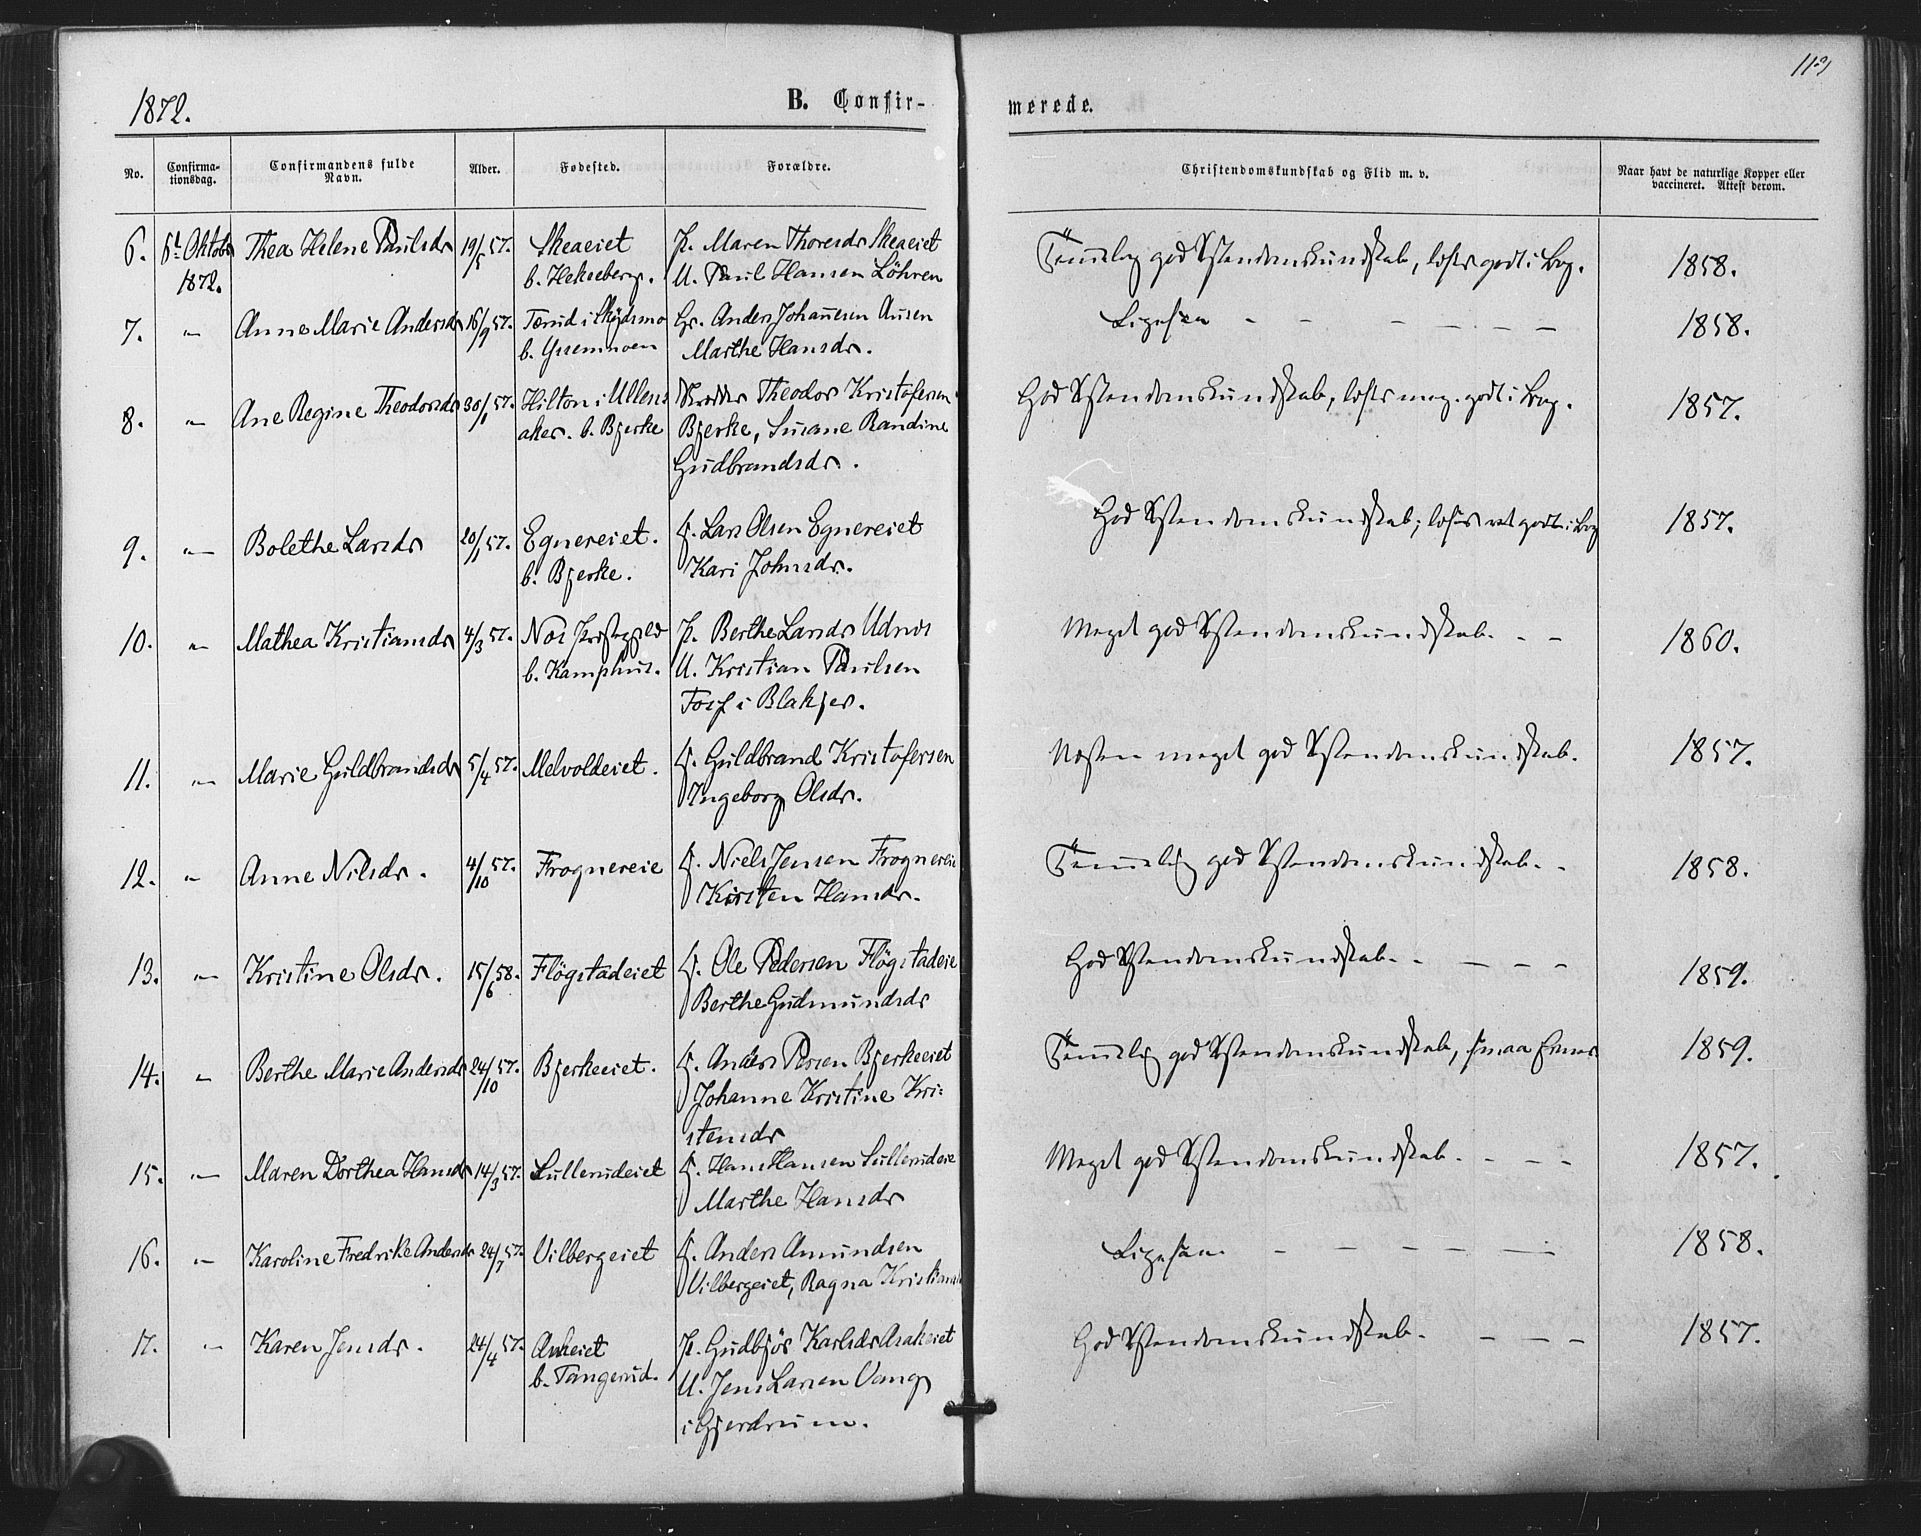 113
1872.
B. Confir-
merede.
No.
Confirma-
tionsdag.
Confirmandens fulde
Navn.
Alder.
Fødested.
Forældre.
Christendomskundskab og Flid m. v.
Naar havt de naturlige Kopper eller
vaccineret. Attest derom.
6. 6t Oktobr Thea Helene Paulsdr 19/5 57. Skeaeiet P. Maren Thoresdr Skeaeiet Temelig god Xstendomskundskab, læser godt i Bog. 1858.
1872. b. Hekseberg. U. Paul Hansen Löhren
7. " Anne Marie Andersdr 16/9 57. i Skydsmo Gr. Anders Johannesen Ausen Ligesaa - - - - - - 1858.
b. Marthe Hansdr.
8. " Ane Regine Theodorsdr 30/1 57. Hilton i Ullens Theodor Kristofersen God Xstendomskundskab, læser meg. godt i Bog. 1857.
aker. b. Bjerke Bjerke, Susane Randine
Gudbrandsdr.
9. " Bolethe Larsdr 20/1 57. Egnereiet. F. Lars Olsen Egnereiet God Xstendomskundskab; læser ret godt i Bog 1857.
b. Bjerke. Kari Johnsdr.
10. " Mathea Kristiansdr 4/3 57. Nes Prstegjeld P. Berthe Larsdr Udnes Meget god Xstendomskundskab. - - 1860.
b. Kamphus. U. Kristian Paulsen
i Blakjer.
11. " Marie Guldbrandsdr 5/4 57. Melvoldeiet. F. Guldbrand Kristofersen Næsten meget god Xstendomskundskab. 1857.
Ingeborg Olsdr.
12. " Anne Nilsdr. 4/10 57. Frognereie F. Niels Jensen Frognereie Temelig god Xstendomskundskab. - 1858.
Kirsten Hansdr.
13. " Kristine Olsdr. 15/6 58. Flögstadeiet F. Ole Pedersen Flögstadeie God Xstendomskundskab. - - - - 1859.
Berthe Gudmundsdr
14. " Berthe Marie Andersdr 24/10 57. Bjerkeeiet. F. Anders Persen Bjerkeeiet Temelig god Xstendomskundskab, smaa Evner. 1859.
Johanne Kristine Kri-
stensdr
15. " Maren Dorthea Hansdr 14/3 57. Lullerudeiet F. Hans Hansen Lullerudeie Meget god Xstendomskundskab. - - - 1857.
Marthe Hansdr
16. " Karoline Fredrike Andersdr 24/7 57. Vilbergeiet F. Anders Amundsen Ligesaa. - - - - - 1858.
Vilbergeiet, Ragna
17. " Karen Jensdr. 24/4 57. P. Gudbjör Karlsdr God Xstendomskundskab. - - - 1857.
b. Tangerud. U. Jens Larsen Vang
i Gjerdrum.